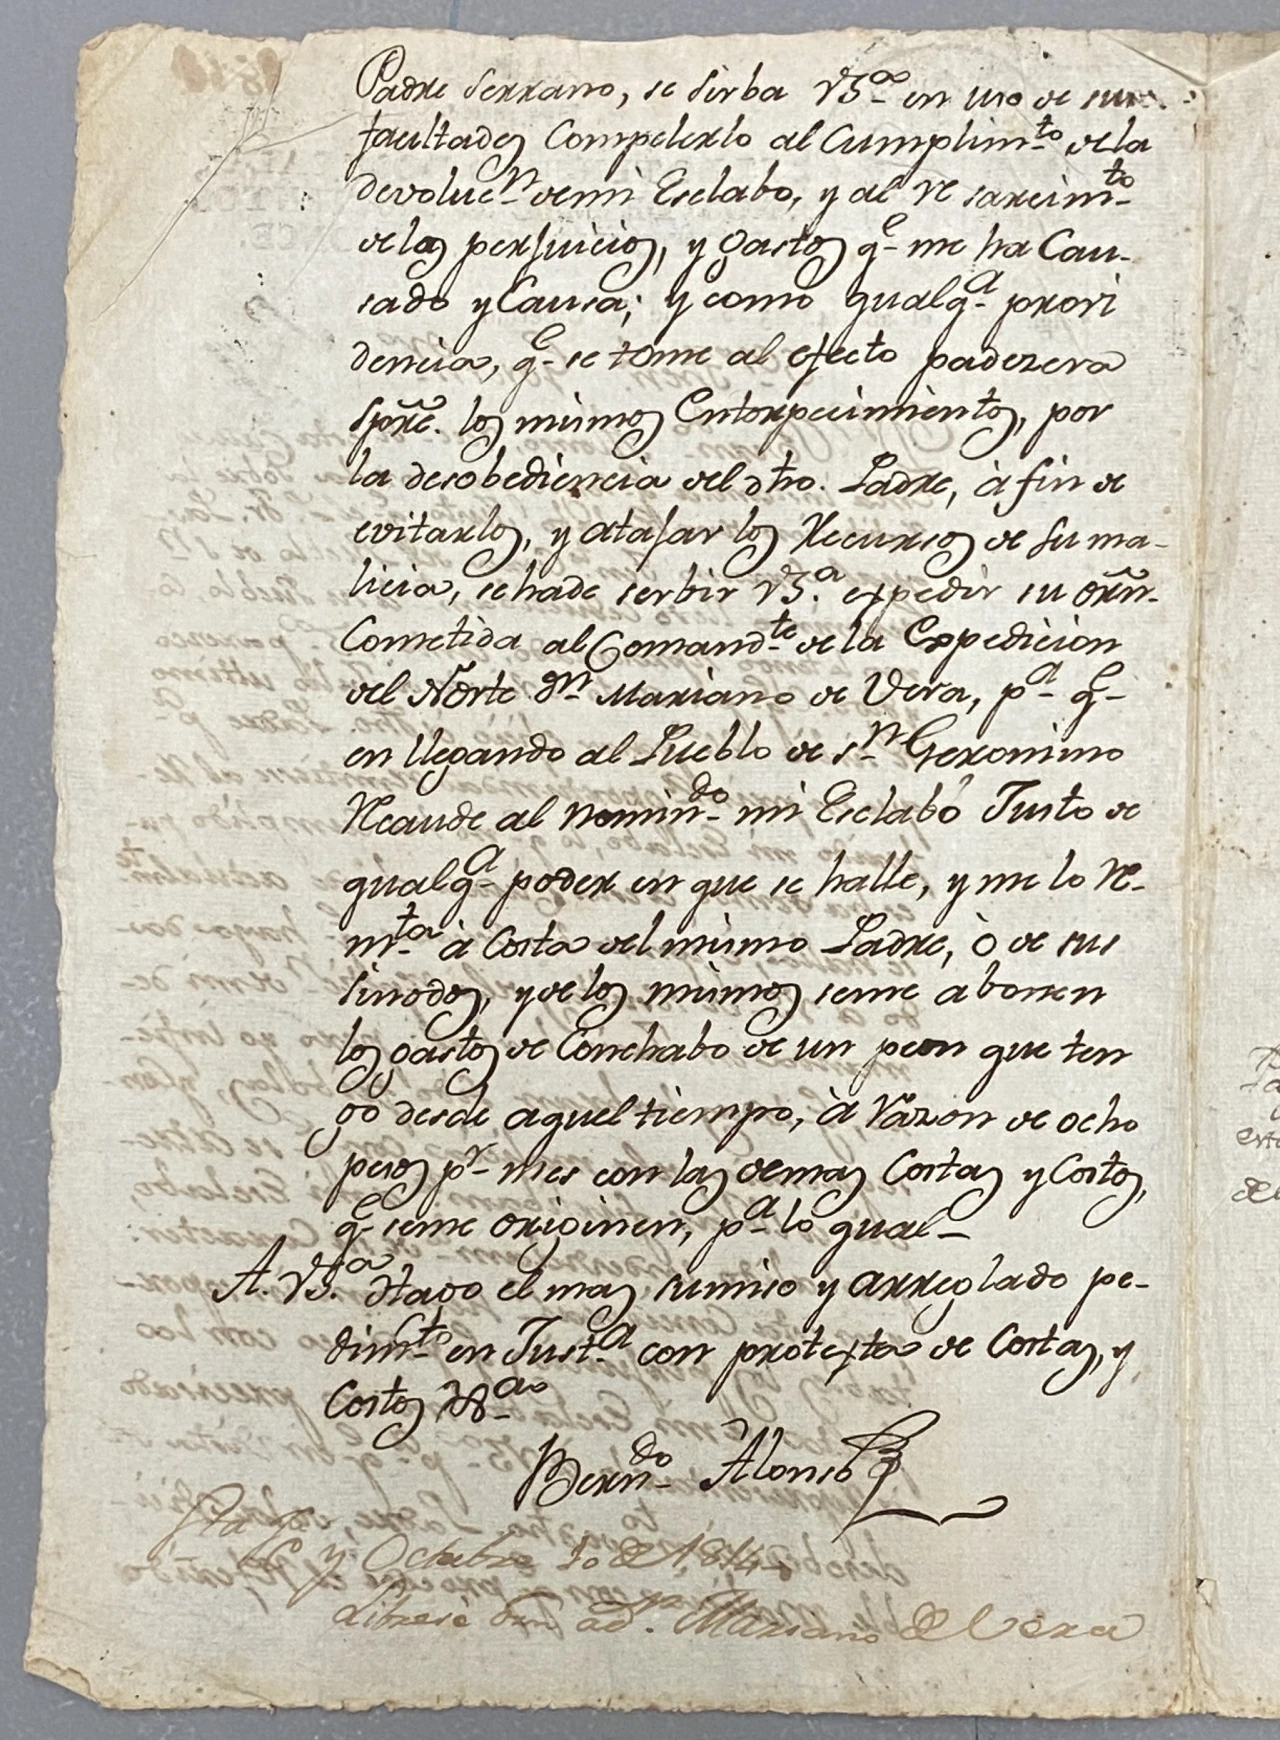 Padre Serrano, se sirba VSª en uso de sus
facultades Compelerlo al Cumplimto de la
devolucn de mi Esclabo, y al resarcimto
de los perjuicios, y gastos qe me ha Cau-
sado y Causa; y como qualqa provi
dencia, qe se tome al efecto padezera
spre. los mismos Entorpecimientos, por
la desobediencia del dho. Padre, à fin de
evitarlos, y atajar los Recursos de su ma-
licia, se ha de serbir VSª expedir su orn.
Cometida al Comandte de la Expedicion
del Norte Dn Mariano de Vera, pa qe
en llegando al Pueblo de Sn Geronimo
Recaude al nomindo mi Esclabo Justo de
qualqa poder en que se halle, y me lo re-
mta à Costa del mismo Padre, ò de sus
sinodos, y de los mismos se me abonen
los gastos de Conchabo de un peon que ten
go desde aquel tiempo, à razon de ocho
pesos pr mes con las demas Costas y Costos,
qe se me originen, pa lo qual-
A. VSª. Hago el mas sumiso y arreglado pe-
dimto en Justa con protexta de Costas, y
Costos
Berndo Alonso
Sta Fe
y Octubre 10 de 1814
Librese orn a Dn Mariano de Vera